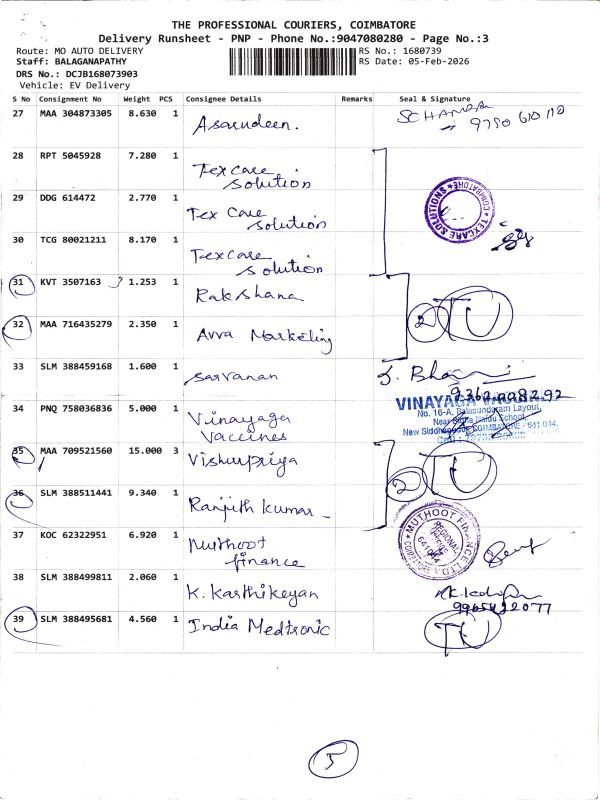 THE PROFESSIONAL COURIERS, COIMBATORE
Delivery Runsheet - PNP - Phone No.:9047080280 - Page No.:3
Route: MO AUTO DELIVERY RS No.: 1680739
Staff: BALAGANAPATHY RS Date: 05-Feb-2026
DRS No.: DCJB168073903
Vehicle: EV Delivery
S No Consignment No Weight PCS Consignee Details Remarks Seal & Signature
27 MAA 304873305 8.630 1 Asarudeen.
28 RPT 5045928 7.280 1 Texcare
Solution
29 DDG 614472 2.770 1 Tex Care
Solution
TEXCARE SOLUTIONS COIMBATORE
30 TCG 80021211 8.170 1 Texcare
Solution
31 KVT 3507163 1.253 1 Rakshana
2 TU
32 MAA 716435279 2.350 1 Avva Marketing
33 SLM 388459168 1.600 1 Sarvanan
34 PNQ 758036836 5.000 1 Vinayaga
Vaccines
VINAYAGA
No. 16-A, Balasundaram Layout,
35 MAA 709521560 15.000 3 Vishnupriya
2 TU
36 SLM 388511441 9.340 1 Ranjith Kumar -
37 KOC 62322951 6.920 1 Muthoot
finance
MUTHOOT FINANCE LTD
REGIONAL
38 SLM 388499811 2.060 1 K. Karthikeyan
39 SLM 388495681 4.560 1 India Medtronic
TU
5